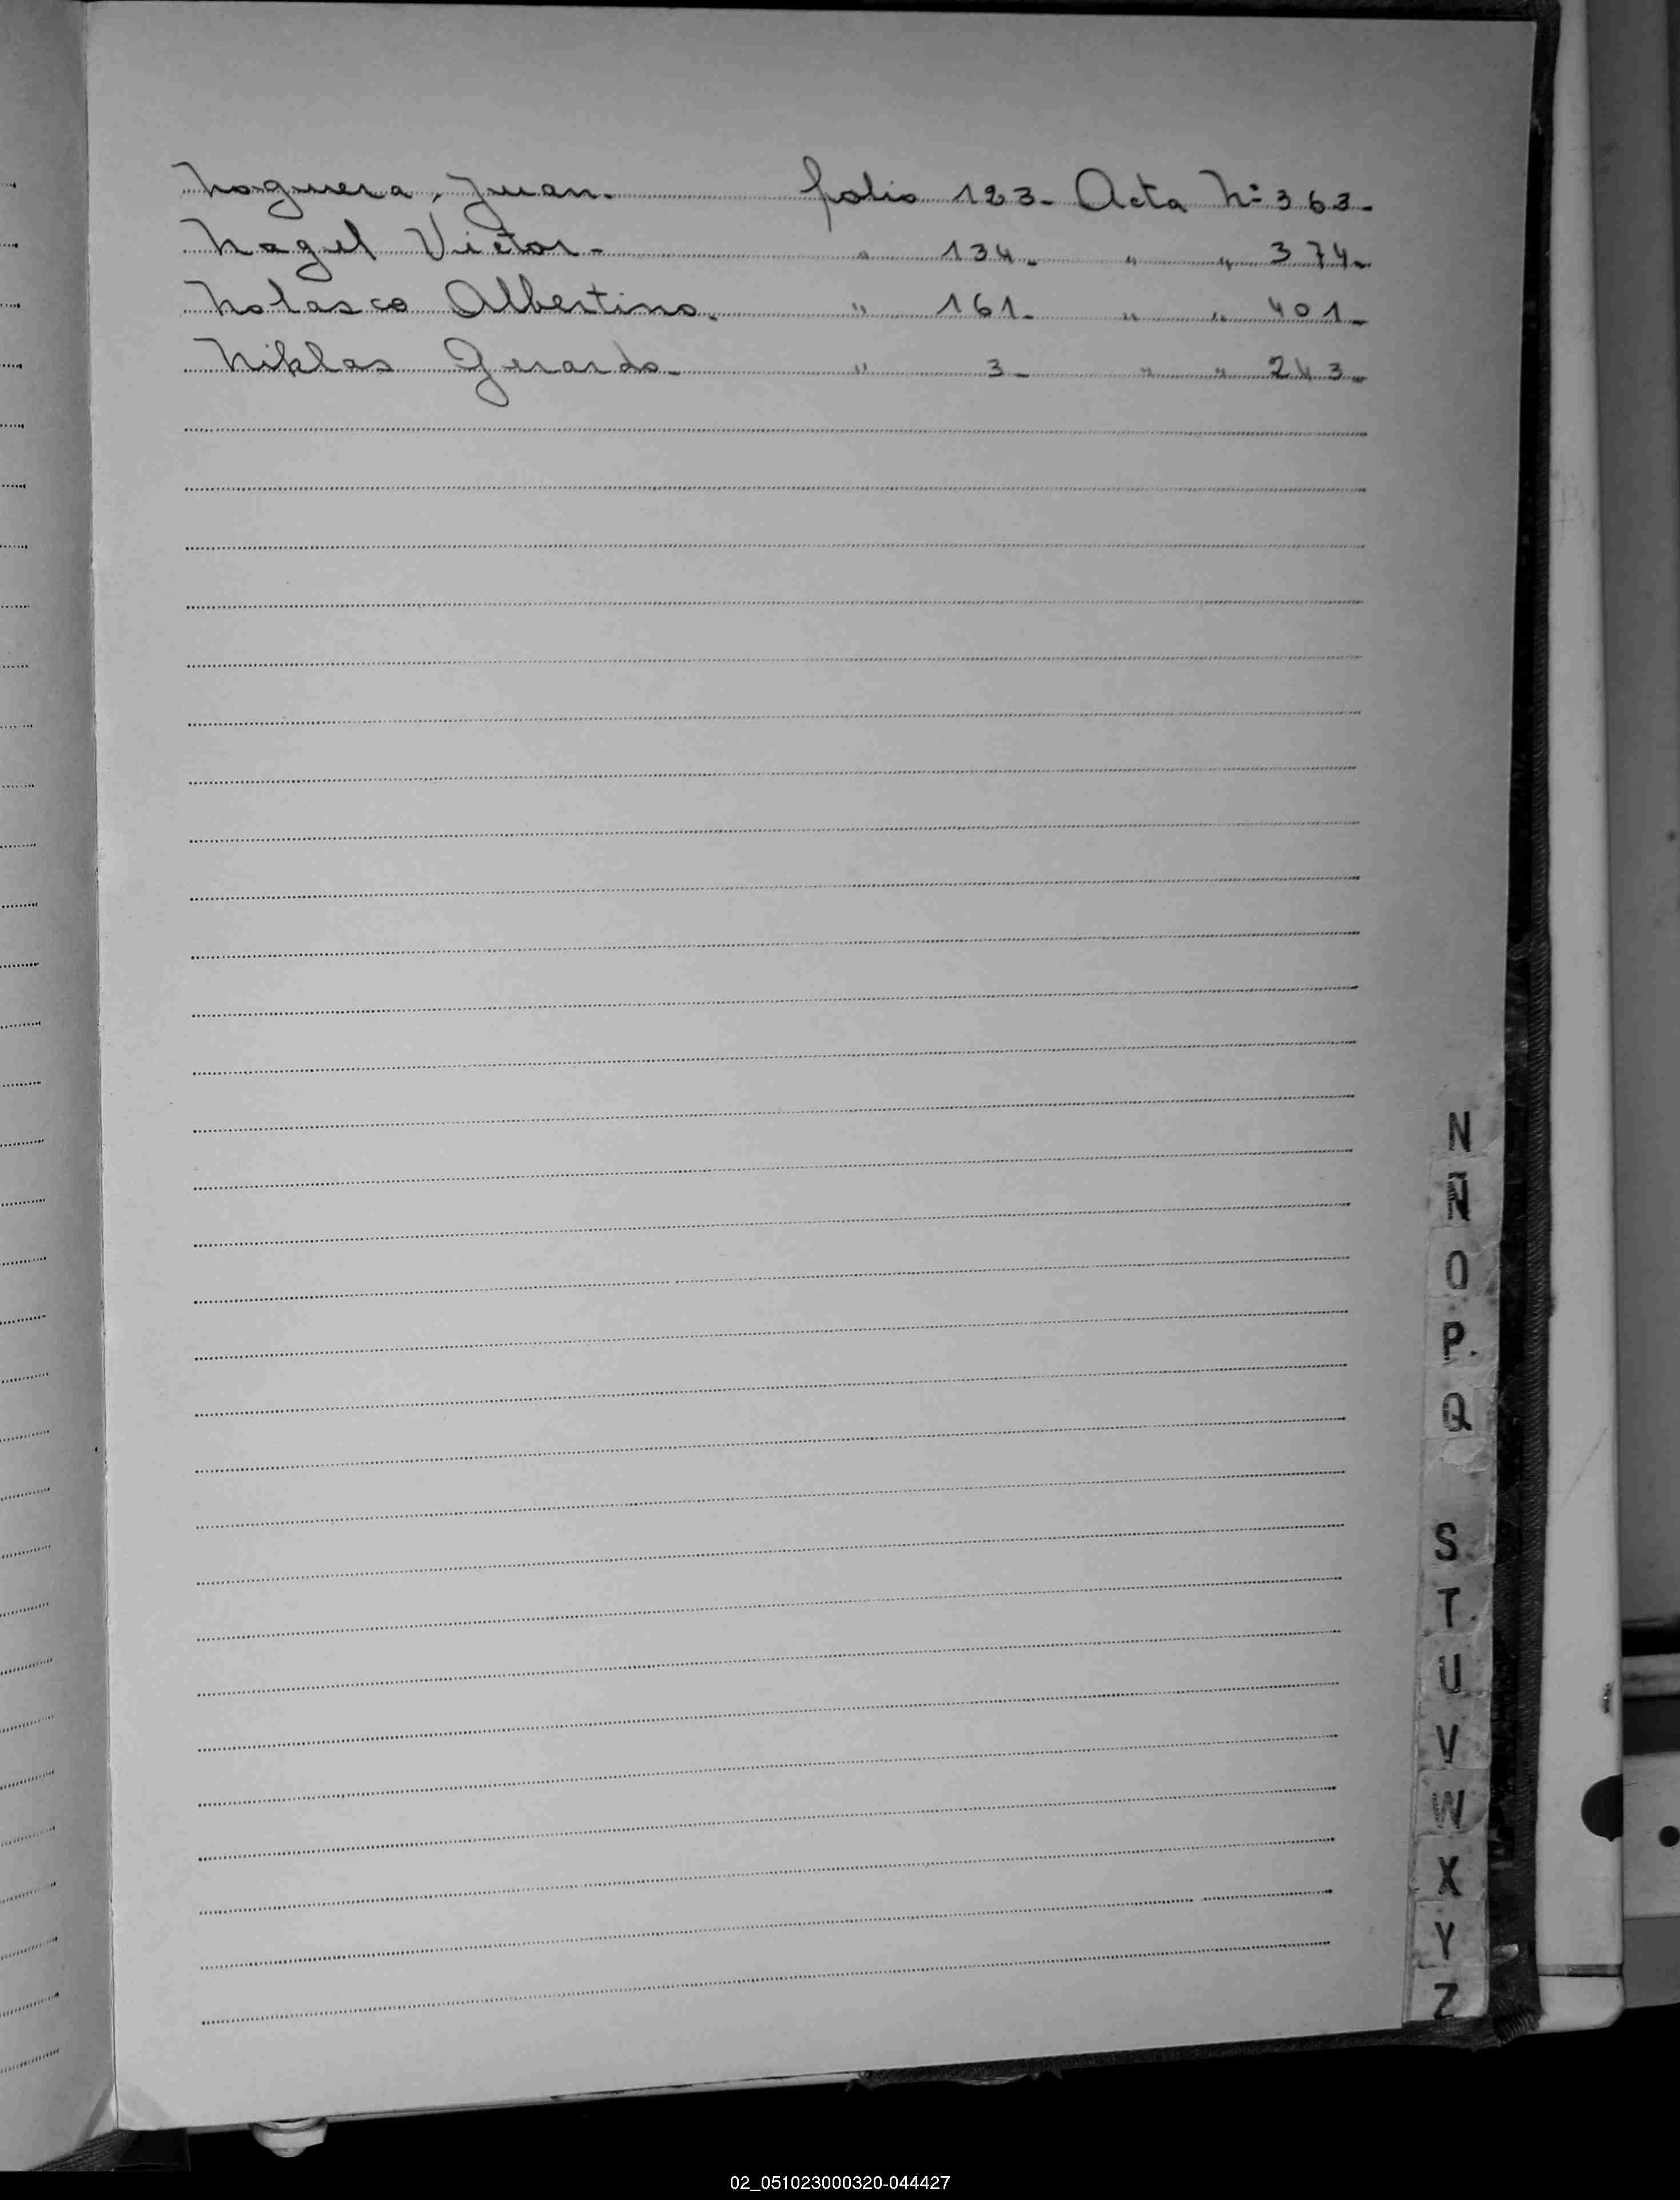 Noguera, Juan. folio 123- Acta Nº 363-
Nagel Victor- " 134- " " 374-
Nolasco Albertino. " 161- " " 401-
Niklas Gerardo- " 3- " " 243-
N
Ñ
O
P.
Q
S
T.
U
V
W
X
Y
Z
02_051023000320-044427